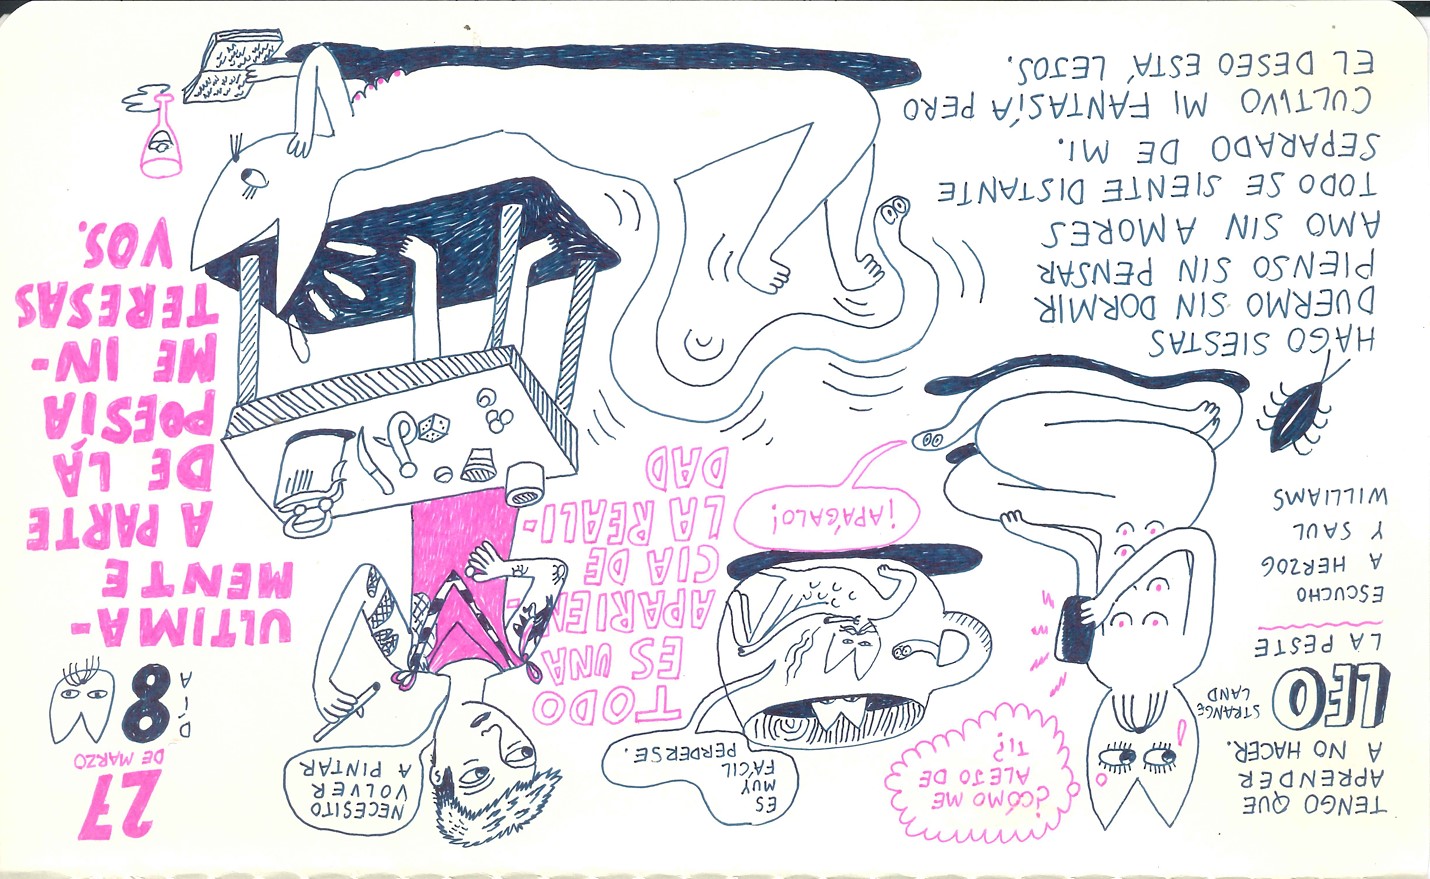 TENGO QUE
APRENDER
A NO HACER.
LEO
STRANGE
LAND
LA PESTE
ESCUCHO
A HERZOG
Y SAUL
WILLIAMS
HAGO SIESTAS
DUERMO SIN DORMIR
PIENSO SIN PENSAR
AMO SIN AMORES
TODO SE SIENTE DISTANTE
SEPARADO DE MI.
CULTIVO MI FANTASÍA PERO
EL DESEO ESTÁ LEJOS.
¿CÓMO ME
ALEJO DE
TI?
ES
MUY
FÁCIL
PERDERSE.
¡APÁGALO!
TODO
ES UNA
APARIEN-
CIA DE
LA REALI-
DAD
NECESITO
VOLVER
A PINTAR
27
DE MARZO
DÍA
8
ULTIMA-
MENTE
A PARTE
DE LA
POESÍA
ME IN-
TERESAS
VOS.